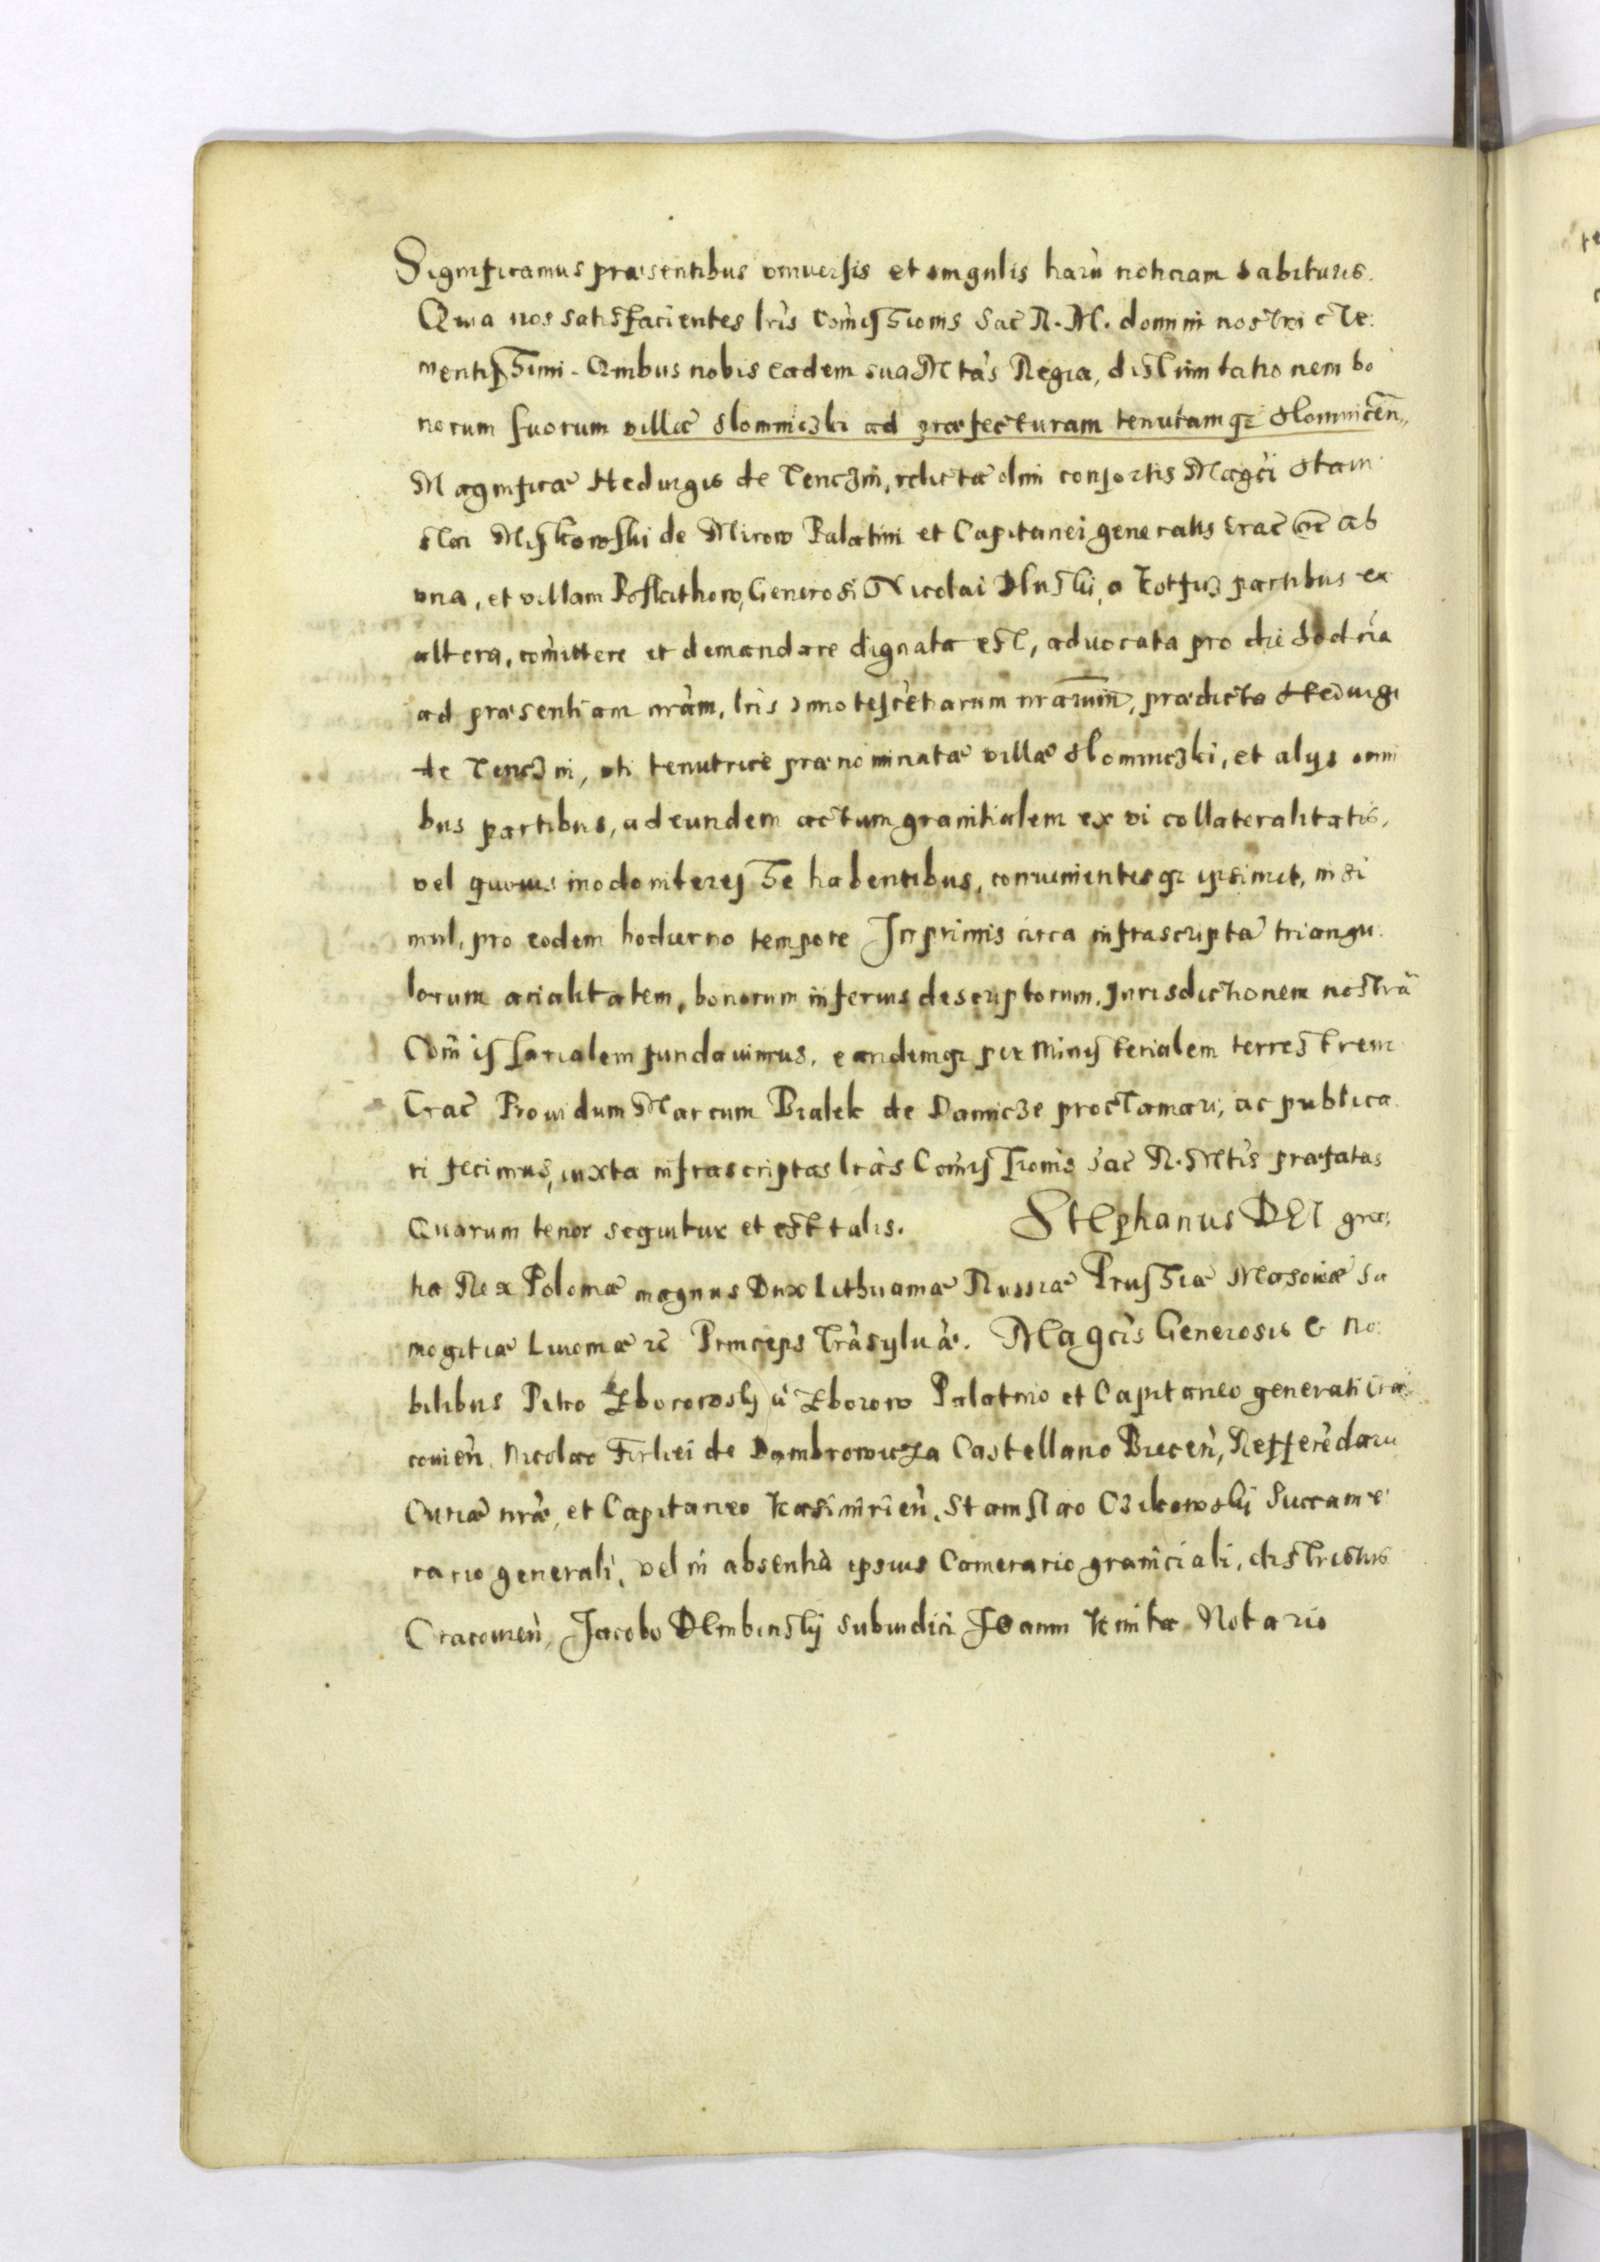 Significamus præsentibus vniuersis et singulis harũ noticiam habituris.
Quia nos satisfacientes lris Comissionis Sac R. M. domini nostri cle
mentissimi. Quibus nobis eadem sua Mtas Regia, dislimitationem bo
norum suorum villæ Slomniczki ad præfecturam tenutamqz Slomnicen.,
Magnificæ Heduigis de Tenczin, relictæ olim consortis Magci Stani
slai Miskowski de Mirow Palatini et Capitanei generalis Crac etc ab
vna, et villam Generosi Nicolai Dluski, a Kotfisz partibus ex
altera, comittere et demandare dignata est, aduocata pro die hodria
ad præsentiam nram, lris innotescetiarum nrarum, prædicta Heduigi
de Tenczin, vti tenutrice prænominatæ villæ Slomniczki, et alijs omni
bus partibus, ad eundem actum granitialem ex vi collateralitatis,
vel quouis modo interesse habentibus, conuenientesqz ipsimet, in si
mul, pro eodem hodierno tempore Inprimis circa infrascriptã triangu
lorum acialitatem, bonorum inferius descriptorum, Jurisdictionem nostrã
Comissarialem fundauimus, eandemqz per Ministerialem terrestrem
Crac Prouidum Marcum Bialek de Damicze proclamari, ac publica
ri fecimus, iuxta infrascriptas lras Comissionis Sac R. Mtis præfatas
Quarum tenor sequitur et est talis. Stephanus DEI gra
tia Rex Poloniæ magnus Dux Lithuaniæ Russiæ Prussiæ Masouiæ Sa
mogitiæ Liuoniæ zc Princeps Trãsyluãæ. Magcis Generosis & no
bilibus Petro Zborowskij a Zborow Palatino et Capitaneo generali Cra
couien, Nicolao Firlei de Dambrowicza Castellano Biecen, Refferẽdario
Curiæ nræ, et Capitaneo Kasimirien, Stanislao Czikowskij Succame
rario generali, vel in absentia ipsius Camerario graniciali, districtus
Cracouien, Jacobo Dembinskij Subiudici Joanni Kmita Notario